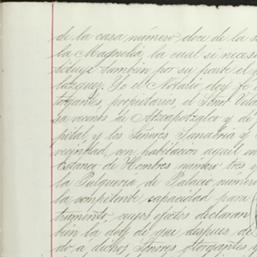 de la casa número doce de la
la Magnolia, la cual si nece
tambien por su parte el
Yo el Notario doy fe
torgantes, propietarios, el Señor
vecino de Atzcapotzalco y de
y los Señores Sanabria y
vecindad, con habitacion aquel en
Estanco de Hombres número tres
la Pulqueria de Palacio, número
la competente capacidad para
cuyos efectos declaran
bien la doy de que despues de
do a dichos Señores otorgantes